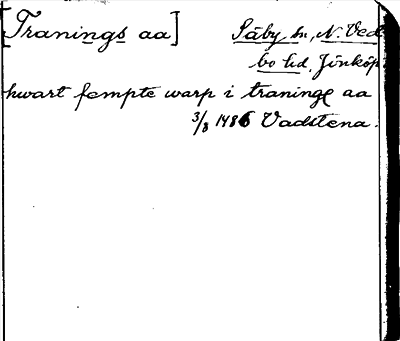 [Tranings aa] Säby sn, N. Ved-
bo hd, Jönköp
hwart fempte warp i traninge aa
3/8 1486 Vadstena.